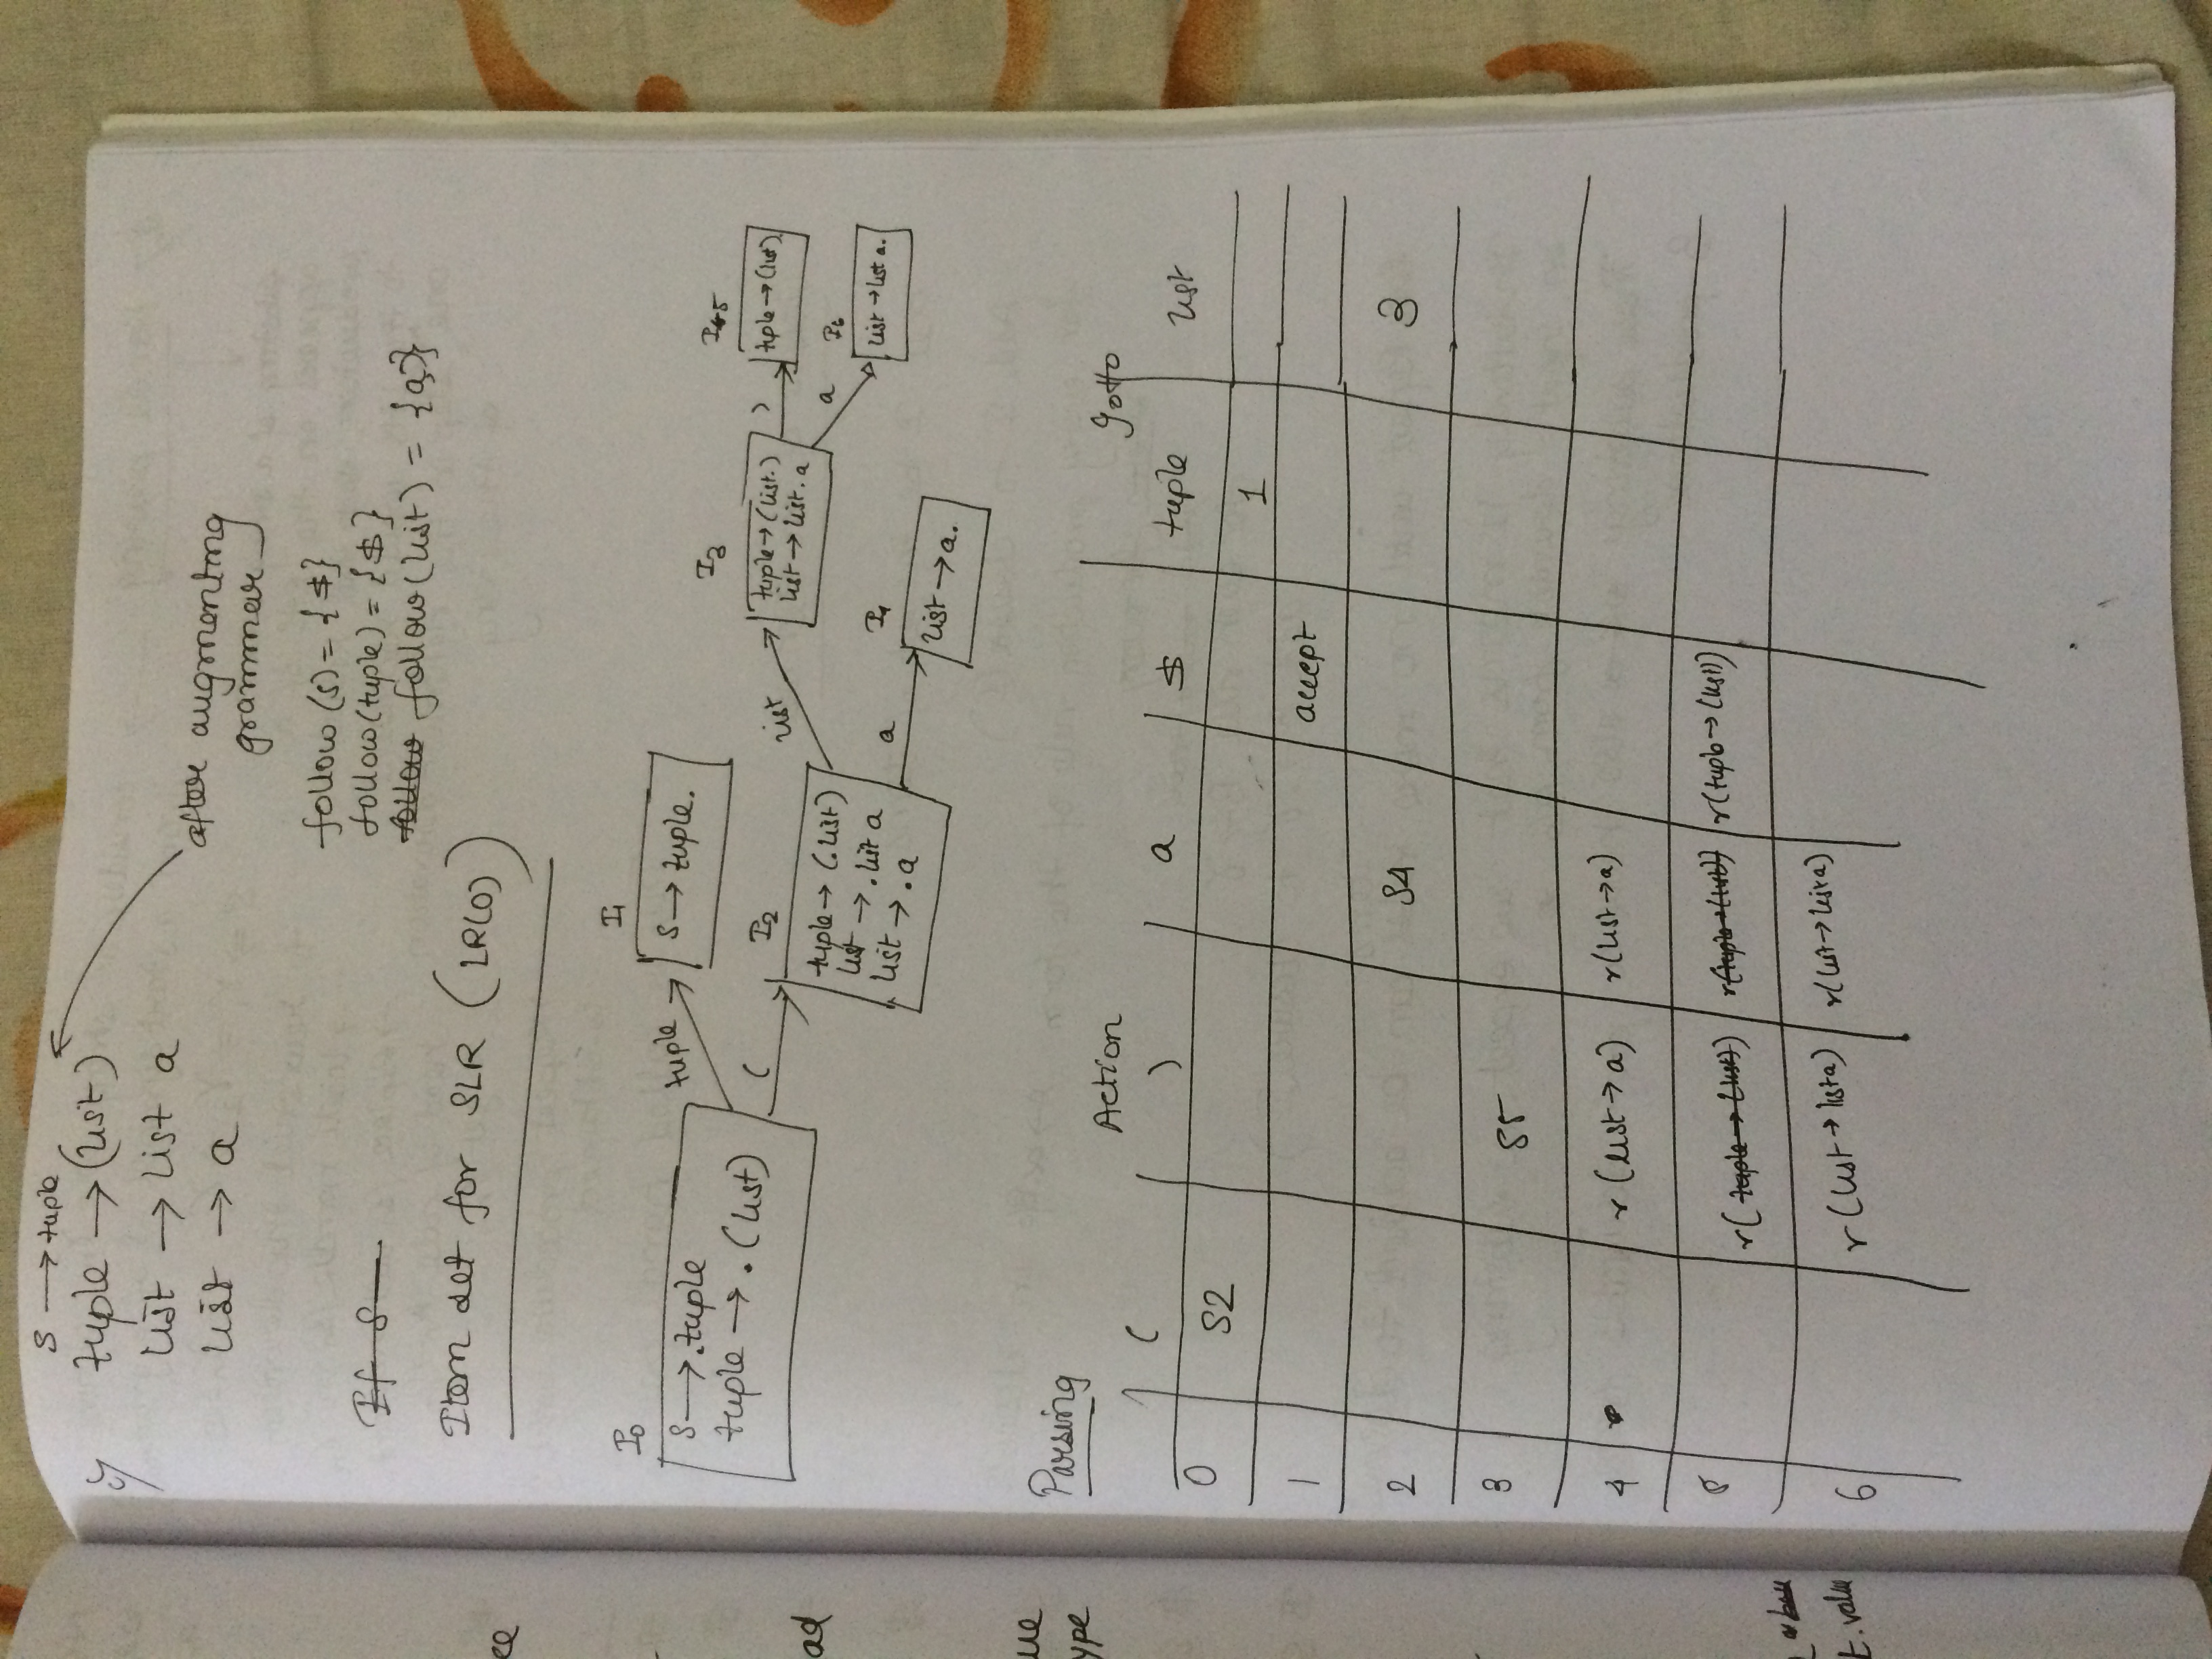 S → tuple
c) tuple → (list)
list → list a
list → a
after augmenting
grammar
follow (s) = {$}
follow (tuple) = {$}
follow (list) = {a,)}
Item set for SLR (LR(0))
I0
S → .tuple
tuple → . (list)
tuple
(
I1
S → tuple.
I2
tuple → (.list)
list → .list a
list → .a
list
a
I3
tuple → (list.)
list → list.a
)
a
I4
list → a.
I5
tuple → (list).
I6
list → list a.
Parsing
Action goto
( ) a $ tuple list
0 S2 1
1 accept
2 S4 3
3 S5
4 r (list → a) r (list → a)
5 r( r r(tuple → (list))
6 r (list → list a) r (list → list a)
ce
ad
ue
ype
t. value